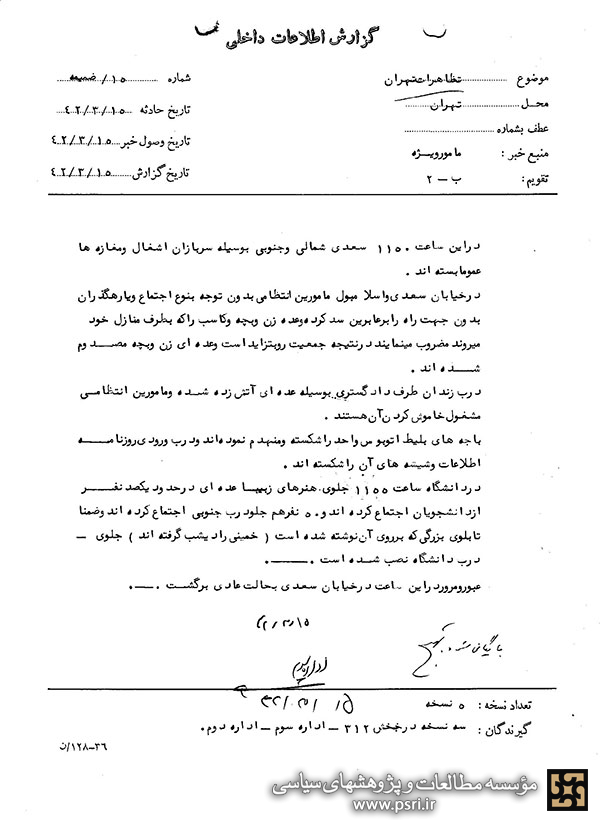 گزارش اطلاعات داخلی
موضوع ........ تظاهرات تهران
شماره ........ ۱۵/ ضمیمه
محل ........ تهران
تاریخ حادثه ۴۲/۳/۱۵
عطف بشماره ........
تاریخ وصول خبر ۴۲/۳/۱۵
منبع خبر : مامور ویژه
تاریخ گزارش ۴۲/۳/۱۵
تقویم : ب – ۲
در این ساعت ۱۱۵۰ سعدی شمالی و جنوبی بوسیله سربازان اشغال و مغازه ها
عموما بسته اند .
در خیابان سعدی و اسلامبول مامورین انتظامی بدون توجه بنوع اجتماع و یا رهگذران
بدون جهت راه را بر عابرین سد کرده و عده زن و بچه و کاسب را که بطرف منازل خود
میروند مضروب مینمایند در نتیجه جمعیت رو بتزاید است و عده ای زن و بچه مصدوم
شده اند .
درب زندان طرف دادگستری بوسیله عده ای آتش زده شده و مامورین انتظامی
مشغول خاموش کردن آن هستند .
باجه های بلیط اتوبوس واحد را شکسته و منهدم نموده اند و درب ورودی روزنامه
اطلاعات و شیشه های آن را شکسته اند .
در دانشگاه ساعت ۱۱۵۵ جلوی هنرهای زیبا عده ای در حدود یکصد نفر
از دانشجویان اجتماع کرده اند و ۵۰ نفر هم جلو درب جنوبی اجتماع کرده اند و ضمنا
تابلوی بزرگی که بر روی آن نوشته شده است ( خمینی را دیشب گرفته اند ) جلوی –
درب دانشگاه نصب شده است .
عبور و مرور در این ساعت در خیابان سعدی بحالت عادی برگشت .
۴۲/۳/۱۵
بایگانی شود
تعداد نسخه : ۵ نسخه
گیرندگان : سه نسخه در بخش ۳۱۲ – اداره سوم – اداره دوم .
۱۲۸-۳۶/ن
مؤسسه مطالعات و پژوهشهای سیاسی
www.psri.ir